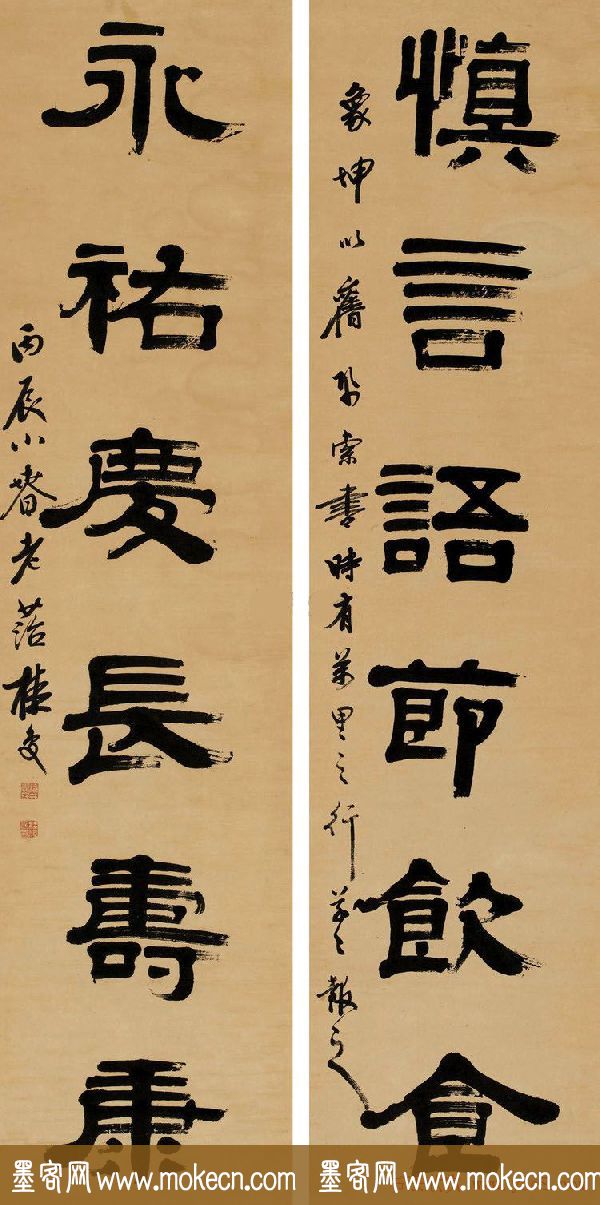 慎言語節飲食
象坤以舊紙索書時有萬里之行草草報之
永祐慶長壽康
丙辰小春老菭桂馥
墨客网 www.mokecn.com
墨客网 www.mokecn.com